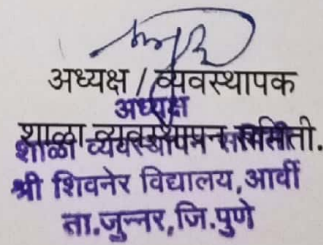 अध्यक्ष / व्यवस्थापक
अध्यक्ष
शाळा व्यवस्थापन समिती.
शाळा व्यवस्थापन समिती
श्री शिवनेर विद्यालय,आर्वी
ता.जुन्नर,जि.पुणे